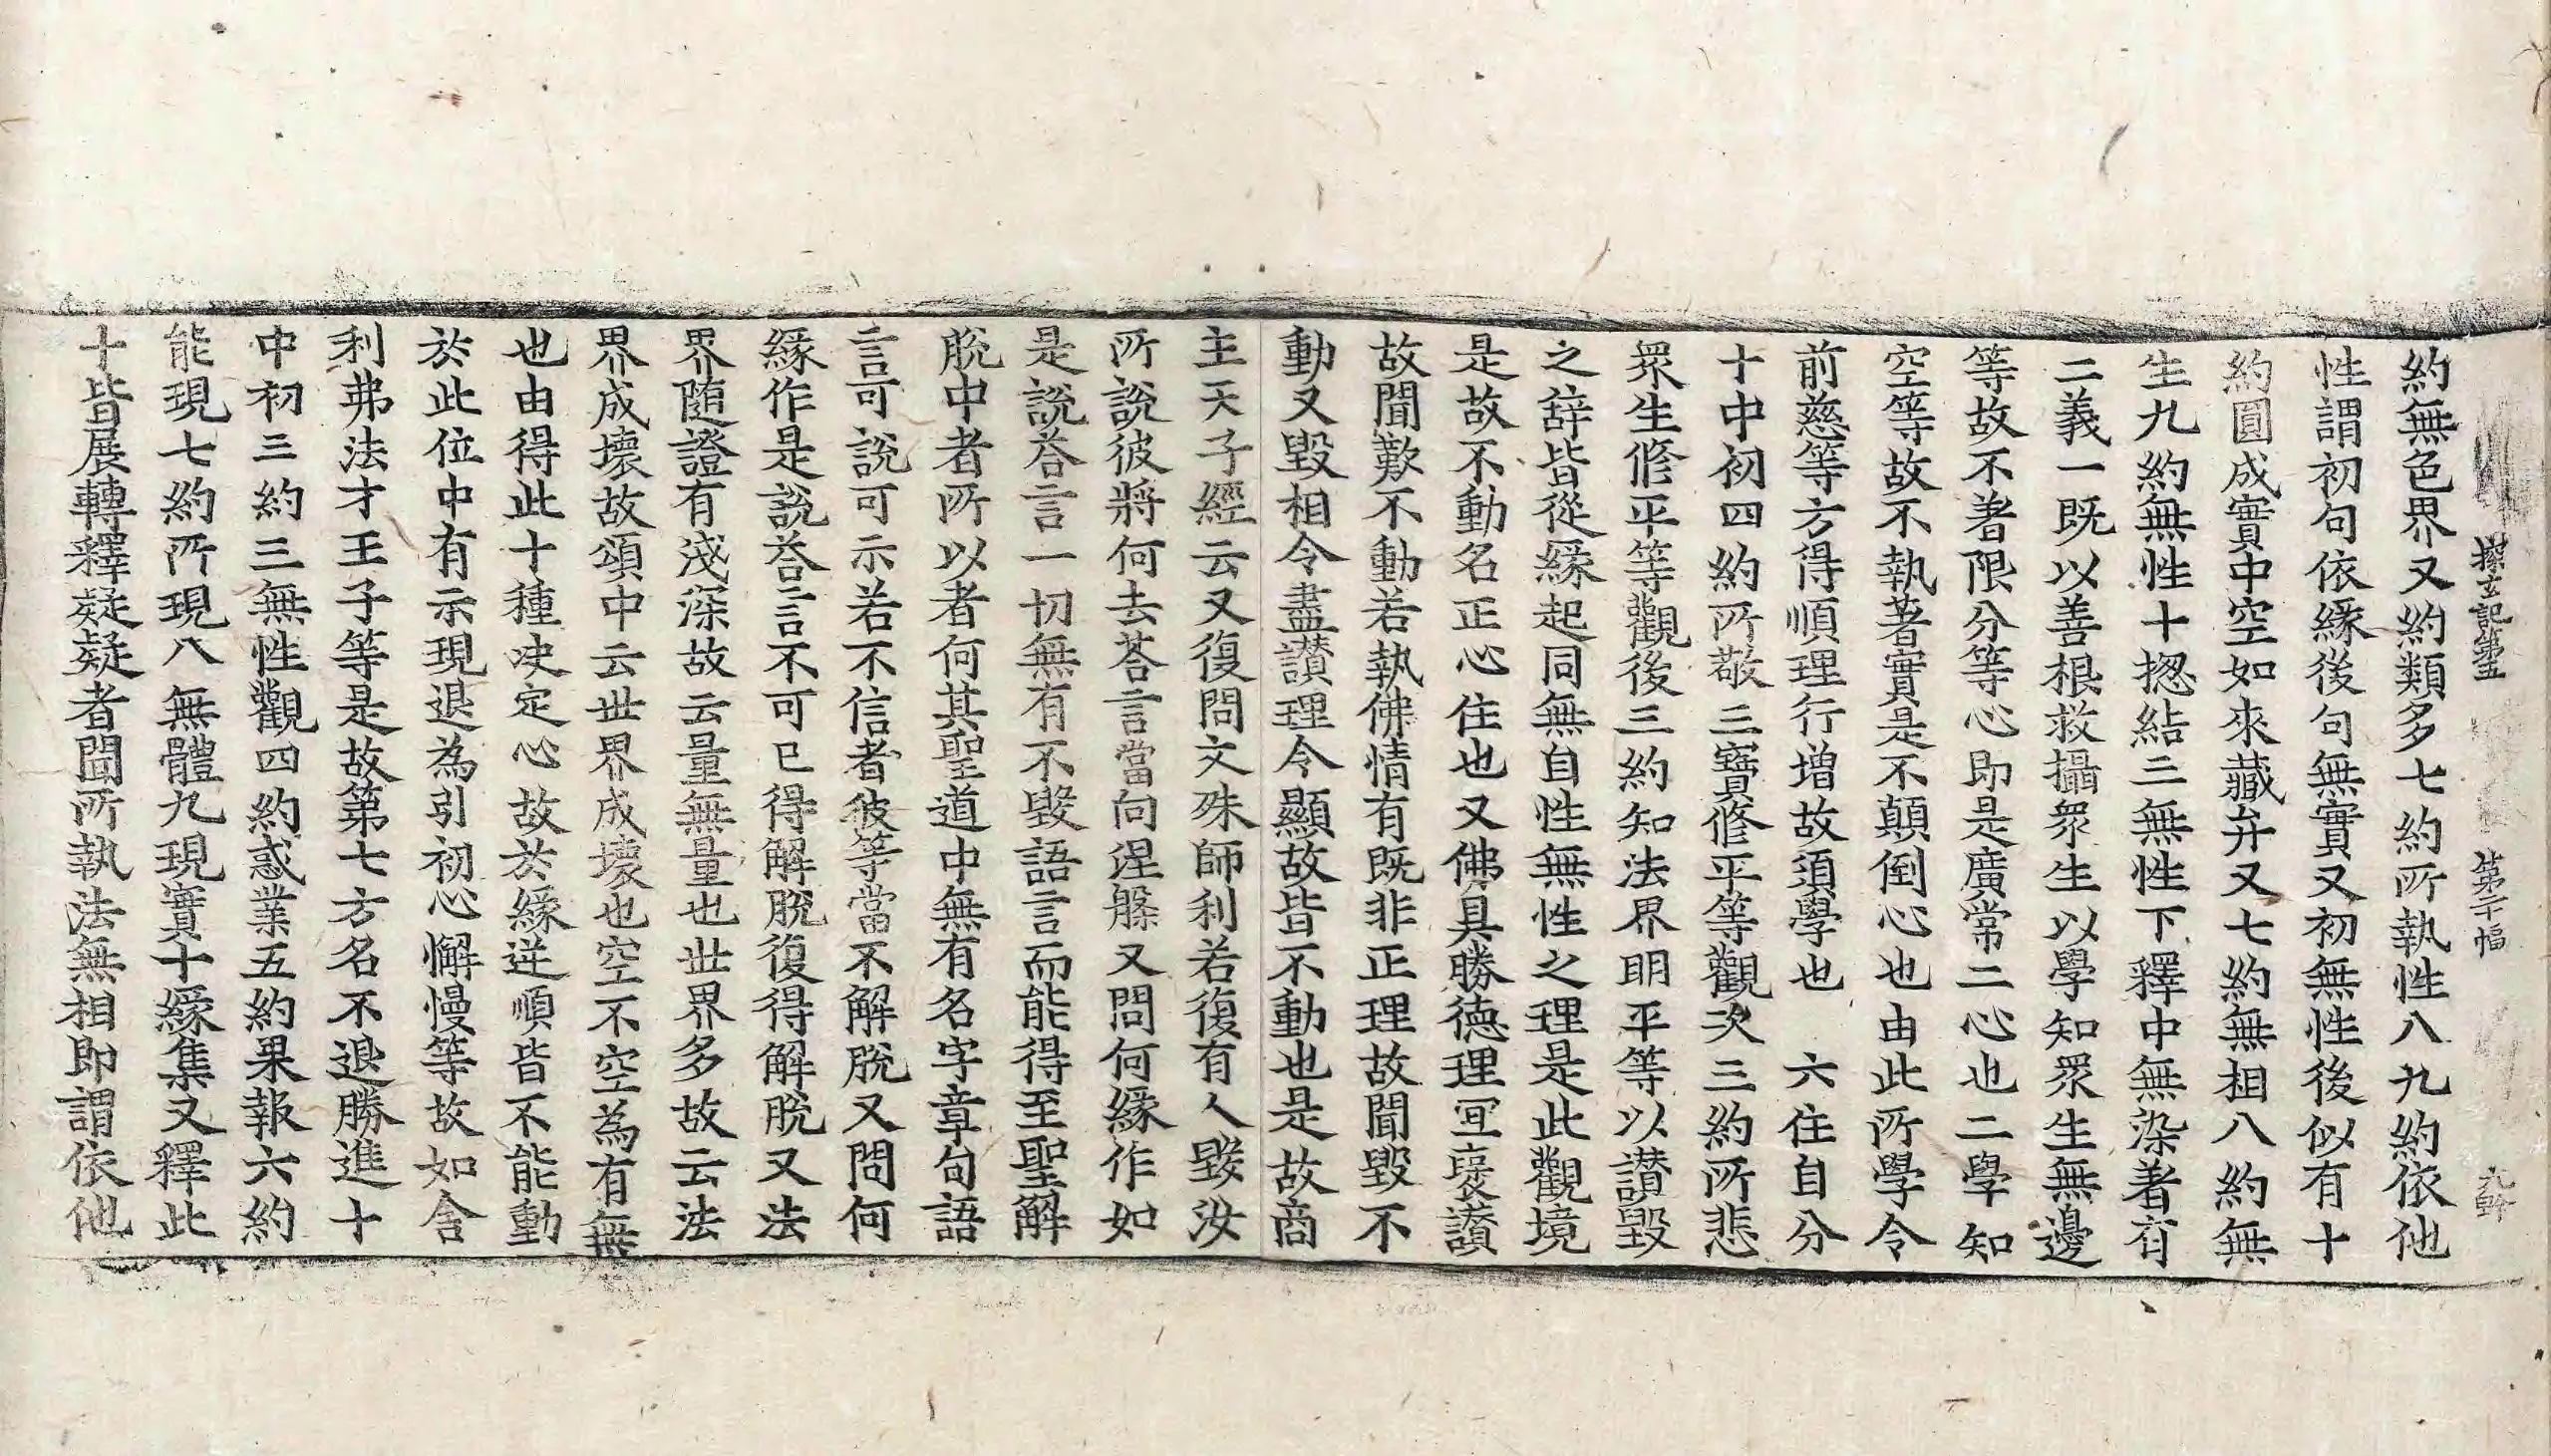 探玄記第五 第二十幅
約無色界又約類多七約所執性八九約依他
性謂初句依緣後句無實又初無性後似有十
約圓成實中空如來藏弁又七約無相八約無
生九約無性十揔結三無性下釋中無染著有
二義一既以善根救攝衆生以學知衆生無邊
等故不著限分等心即是廣常二心也二學知
空等故不執著實是不顛倒心也由此所學令
前慈等方得順理行增故須學也 六住自分
十中初四約所敬三寶修平等觀次三約所悲
衆生修平等觀後三約知法界明平等以讃毀
之辞皆從緣起同無自性無性之理是此觀境
是故不動名正心住也又佛具勝德理冝裦讃
故聞歎不動若執佛情有既非正理故聞毀不
動又毀相令盡讃理令顯故皆不動也是故商
主天子經云又復問文殊師利若復有人毀汝
所說彼將何去荅言當向涅槃又問何緣作如
是說荅言一切無有不毀語言而能得至聖解
脫中者所以者何其聖道中無有名字章句語
言可說可示若不信者彼等當不解脫又問何
緣作是說荅言不可已得解脫復得解脫又法
界随證有淺深故云量無量也世界多故云法
界成壞故頌中云世界成壞也空不空為有無
也由得此十種决定心故於緣逆順皆不能動
於此位中有示現退為引初心懈慢等故如舍
利弗法才王子等是故第七方名不退勝進十
中初三約三無性觀四約惑業五約果報六約
能現七約所現八無體九現實十緣集又釋此
十皆展轉釋疑疑者聞所執法無相即謂依他